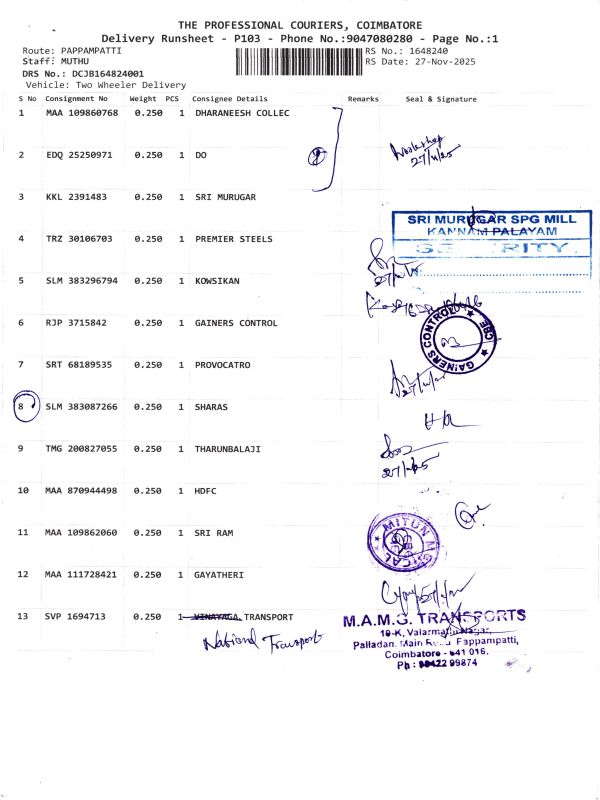 THE PROFESSIONAL COURIERS, COIMBATORE
Delivery Runsheet - P103 - Phone No.:9047080280 - Page No.:1
Route: PAPPAMPATTI
RS No.: 1648240
Staff: MUTHU
RS Date: 27-Nov-2025
DRS No.: DCJB164824001
Vehicle: Two Wheeler Delivery
S No Consignment No Weight PCS Consignee Details Remarks Seal & Signature
1 MAA 109860768 0.250 1 DHARANEESH COLLEC
2 EDQ 25250971 0.250 1 DO
27/11/25
3 KKL 2391483 0.250 1 SRI MURUGAR
SRI MURUGAR SPG MILL
KANNAM PALAYAM
SECURITY
4 TRZ 30106703 0.250 1 PREMIER STEELS
5 SLM 383296794 0.250 1 KOWSIKAN
6 RJP 3715842 0.250 1 GAINERS CONTROL
GAINERS CONTROL CBE
7 SRT 68189535 0.250 1 PROVOCATRO
8 SLM 383087266 0.250 1 SHARAS
9 TMG 200827055 0.250 1 THARUNBALAJI
27/11/25
10 MAA 870944498 0.250 1 HDFC
11 MAA 109862060 0.250 1 SRI RAM
12 MAA 111728421 0.250 1 GAYATHERI
13 SVP 1694713 0.250 1 VINAYAGA TRANSPORT
National Transport
M.A.M.G. TRANSPORTS
19-K, Valarmathi Nagar,
Palladan. Main Road Pappampatti,
Coimbatore - 641 016.
Ph : 99874